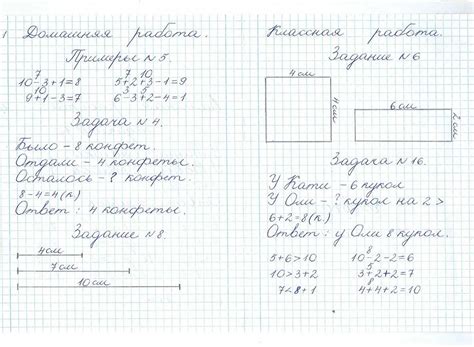 Домашняя работа.
Примеры №5.
7
10-3+1=8
7 10
5+2+3-1=9
10
9+1-3=7
3 5
6-3+2-4=1
Задача №4.
Было - 8 конфет.
Отдали - 4 конфеты.
Осталось - ? конфет.
8-4=4(к)
Ответ: 4 конфеты.
Задание №8.
4см
7см
10см
Классная работа.
Задание №6
4см
4см
6см
2см
Задача №16.
У Кати - 6 кукол
У Оли - ? кукол на 2 >
6+2=8(к.)
Ответ: у Оли 8 кукол.
5+6>10
8
10-2-2=6
10>3+2
5
3+2+2=7
7<8+1
8
4+4+2=10